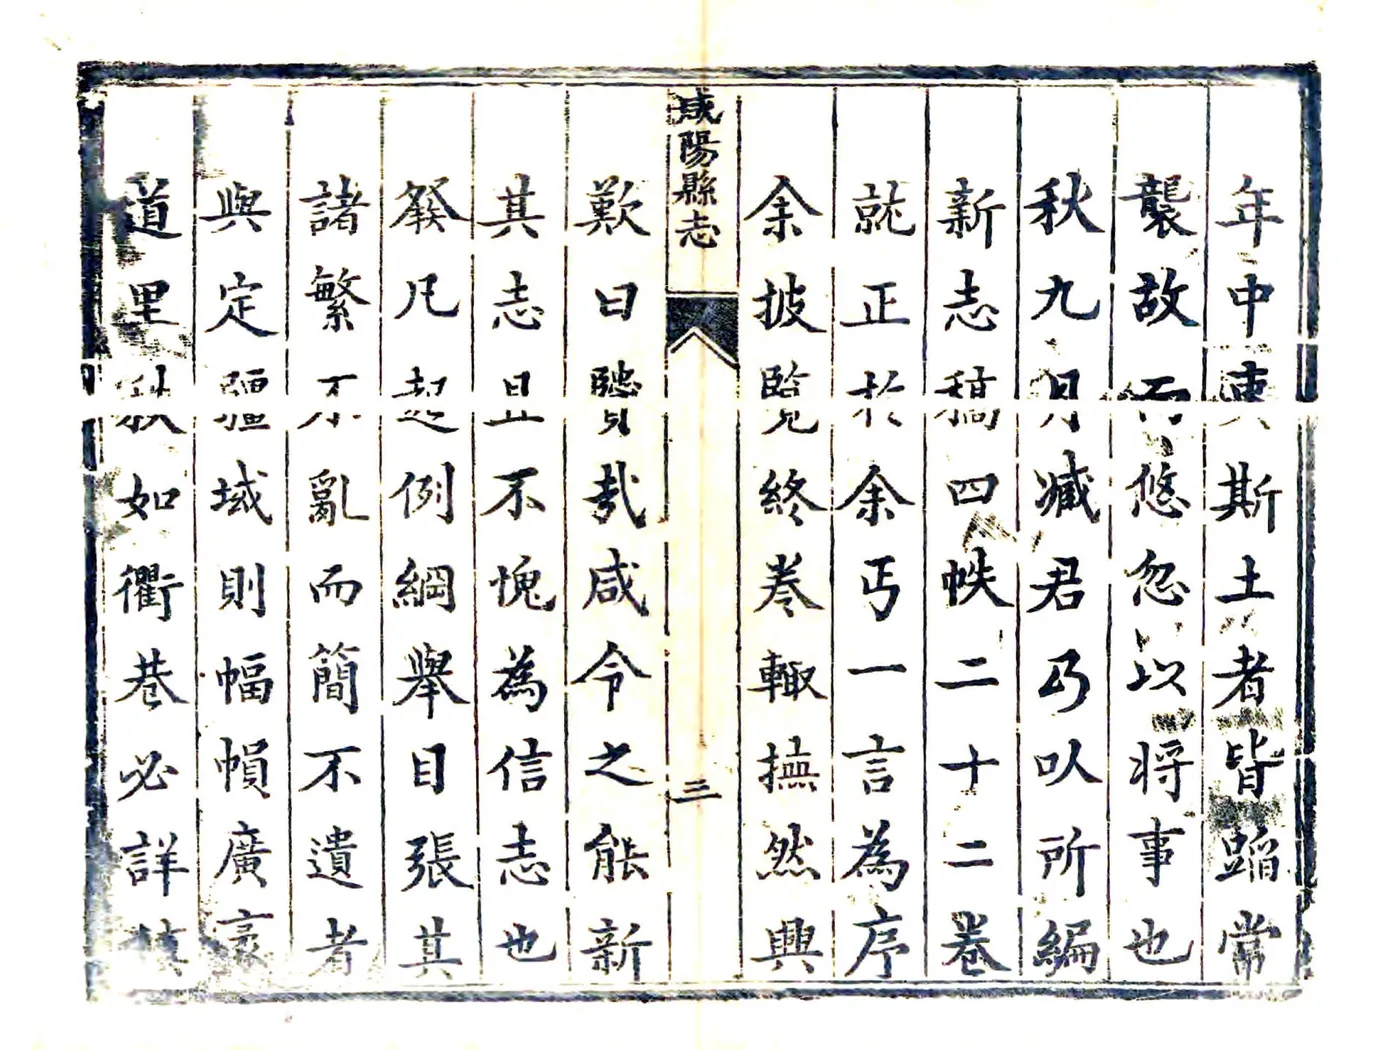 年中吏斯土者皆蹈常
襲故而悠忽以將事也
秋九月臧君乃以所編
新志稿四帙二十二卷
就正於余丐一言為序
余披覽終卷輙撫然興
咸陽縣志
三
歎曰賢哉咸令之能新
其志且不愧為信志也
發凡起例綱舉目張其
諸繁不亂而簡不遺者
與定疆域則幅幀廣袤
道里秩如衢巷必詳